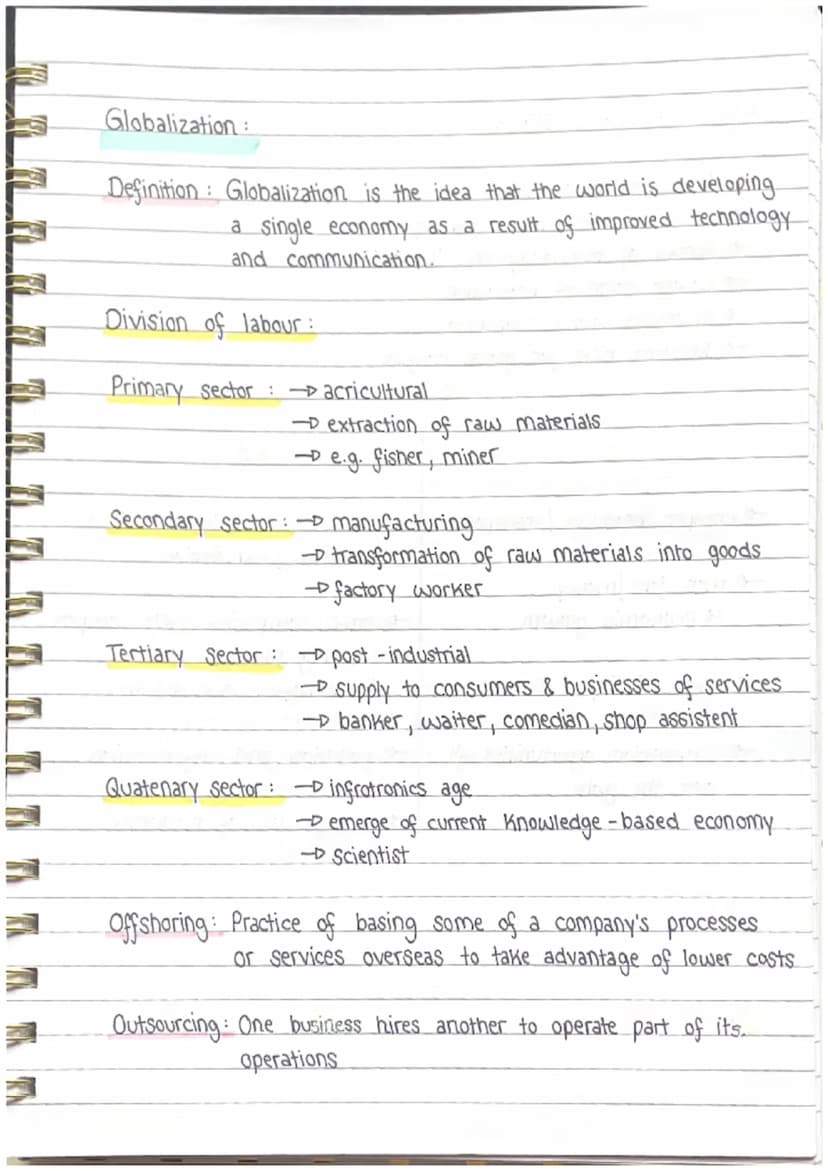 Globalization :
Definition : Globalization is the idea that the world is developing
a single economy as a result of improved technology
and communication.
Division of labour :
Primary sector : → acricultural
→ extraction of raw materials
→ e.g. fisher, miner
Secondary sector : → manufacturing
→ transformation of raw materials into goods
→ factory worker
Tertiary sector : → post - industrial
→ supply to consumers & businesses of services
→ banker, waiter, comedian, shop assistent
Quatenary sector : → infrotronics age
→ emerge of current knowledge - based economy
→ scientist
Offshoring : Practice of basing some of a company's processes
or services overseas to take advantage of lower costs
Outsourcing : One business hires another to operate part of its.
operations